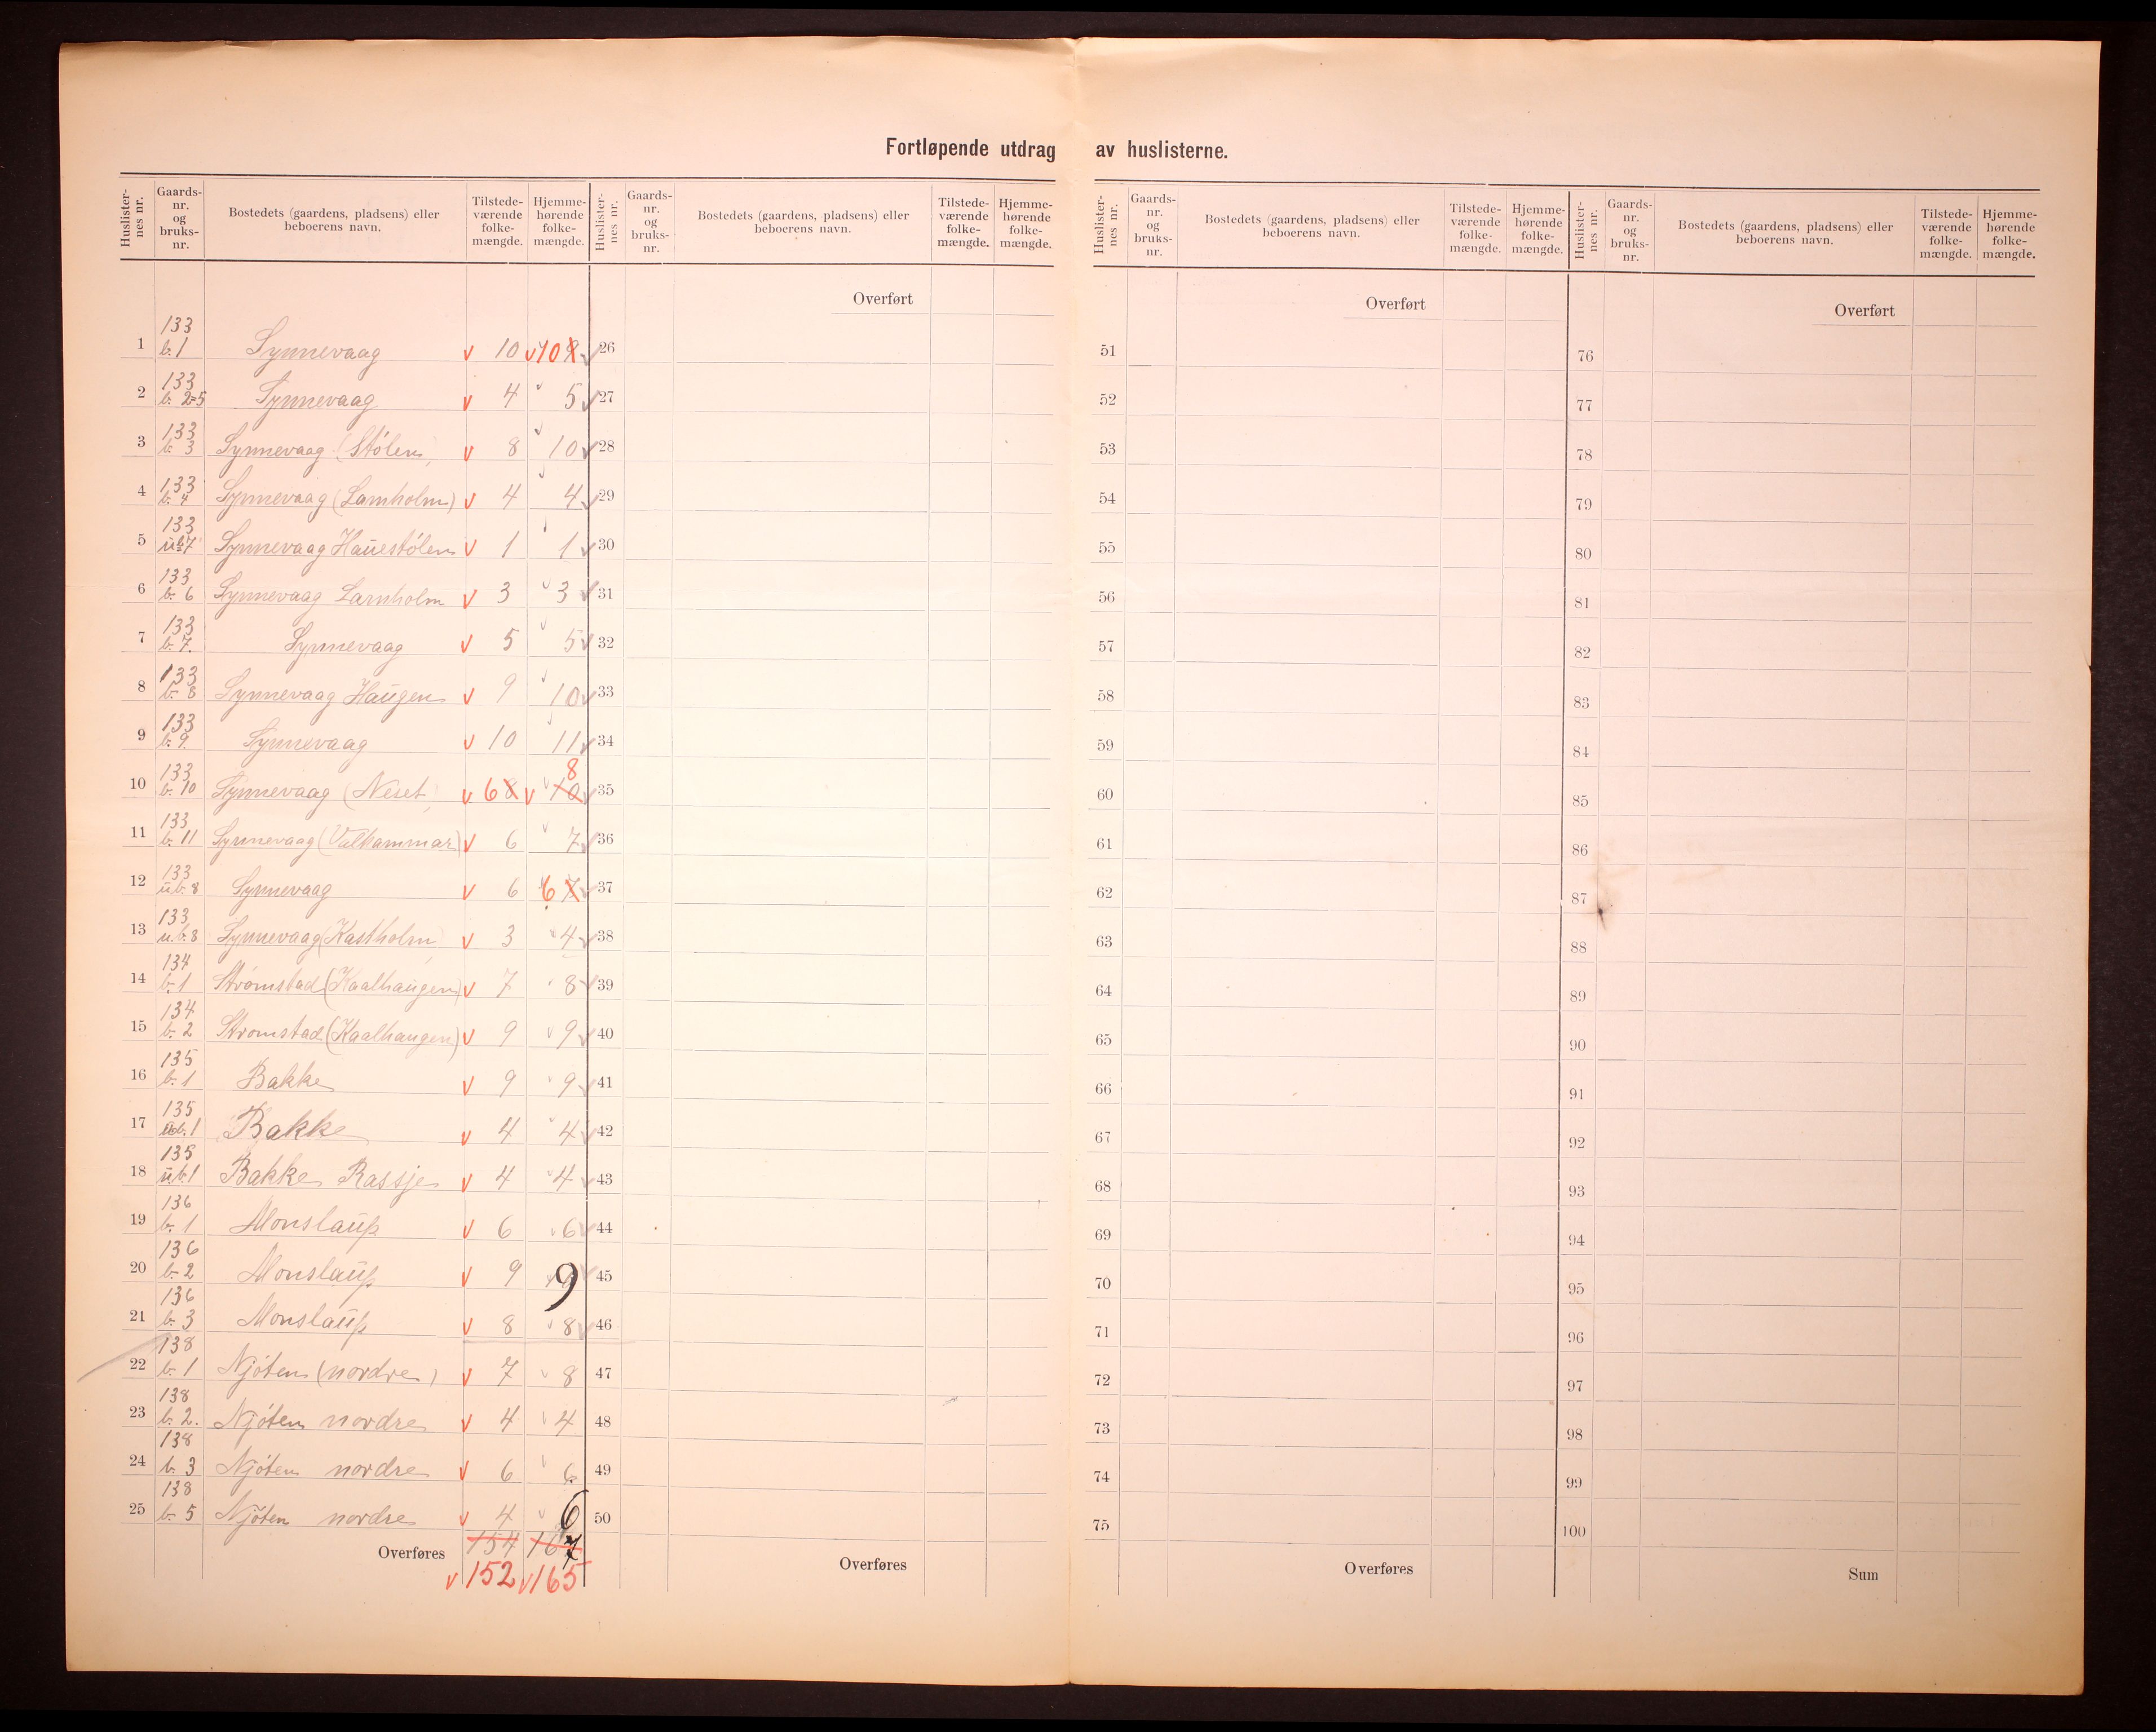 Fortløpende utdrag av huslisterne.
Huslister-nes nr. Gaards-nr. og bruks-nr. Bostedets (gaardens, pladsens) eller beboerens navn. Tilstede-værende folke-mængde. Hjemme-hørende folke-mængde.
1 133 b. 1 Synnevaag 10 10 9
2 133 b. 2=5 Synnevaag 4 5
3 133 b. 3 Synnevaag (Stølen) 8 10
4 133 b. 4 Synnevaag (Lamholm) 4 4
5 133 Synnevaag Hauestølen 1 1
6 133 b. 6 Synnevaag Larnholm 3 3
7 133 b. 7. Synnevaag 5 5
8 133 b. 8 Synnevaag Haugen 9 10
9 133 b. 9. Synnevaag 10 11
10 133 b. 10 Synnevaag (Neset) 6 8 8 10
11 133 b. 11 Synnevaag (Valhammar) 6 7
12 133 u.b. 8 Synnevaag 6 6 7
13 133 u.b. 8 Synnevaag (Kastholm) 3 4
14 134 b. 1 Strømstad (Kaalhaugen) 7 8
15 134 b. 2 Strømstad (Kaalhaugen) 9 9
16 135 b. 1 Bakke 9 9
17 135 ub. 1 Bakke 4 4
18 135 u.b. 1 Bakke Rassje 4 4
19 136 b. 1 Monslaup 6 6
20 136 b. 2 Monslaup 9 9
21 136 b. 3 Monslaup 8 8
22 138 b. 1 Njøten (nordre) 7 8
23 138 b. 2. Njøten nordre 4 4
24 138 b. 3 Njøten nordre 6 6
25 138 b. 5 Njøten nordre 4 6
Overføres 154 167
152 165
Huslister-nes nr. Gaards-nr. og bruks-nr. Bostedets (gaardens, pladsens) eller beboerens navn. Tilstede-værende folke-mængde. Hjemme-hørende folke-mængde.
Overført
26
27
28
29
30
31
32
33
34
35
36
37
38
39
40
41
42
43
44
45
46
47
48
49
50
Overføres
Huslister-nes nr. Gaards-nr. og bruks-nr. Bostedets (gaardens, pladsens) eller beboerens navn. Tilstede-værende folke-mængde. Hjemme-hørende folke-mængde.
Overført
51
52
53
54
55
56
57
58
59
60
61
62
63
64
65
66
67
68
69
70
71
72
73
74
75
Overføres
Huslister-nes nr. Gaards-nr. og bruks-nr. Bostedets (gaardens, pladsens) eller beboerens navn. Tilstede-værende folke-mængde. Hjemme-hørende folke-mængde.
Overført
76
77
78
79
80
81
82
83
84
85
86
87
88
89
90
91
92
93
94
95
96
97
98
99
100
Sum